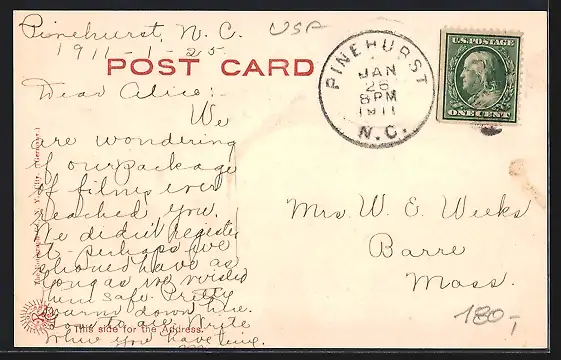 Pinehurst, N. C. USA
1911-1-25.
POST CARD
Dear Alice:-
We
are wondering
if our package
of films ever
reached you.
We didn't register
it - perhaps we
should have as
long as we wished
them safe. Pretty
warm down here.
Write
when you have time.
This side for the Address.
PINEHURST
JAN
26
8PM
1911
N.C.
U.S. POSTAGE
ONE CENT
Mrs. W. E. Weeks
Barre
Mass.
180,-